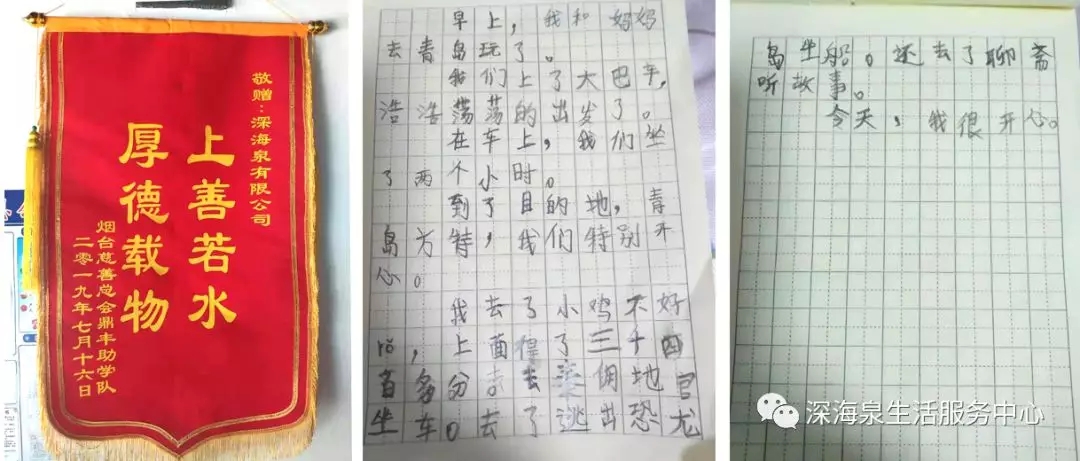 敬赠：深海泉有限公司
上善若水
厚德载物
烟台慈善总会鼎丰助学队
二零一九年七月十六日
早上，我和妈妈
去青岛玩了。
我们上了大巴车，
浩浩荡荡的出发了。
在车上，我们坐
了两个小时。
到了目的地，青
岛方特，我们特别开
心。
我去了小鸡不好
惹，上面得了三千四
百多分 去 地
坐车。去了逃出恐龙
岛坐船。还去了聊斋
听故事。
今天，我很开心。
深海泉生活服务中心